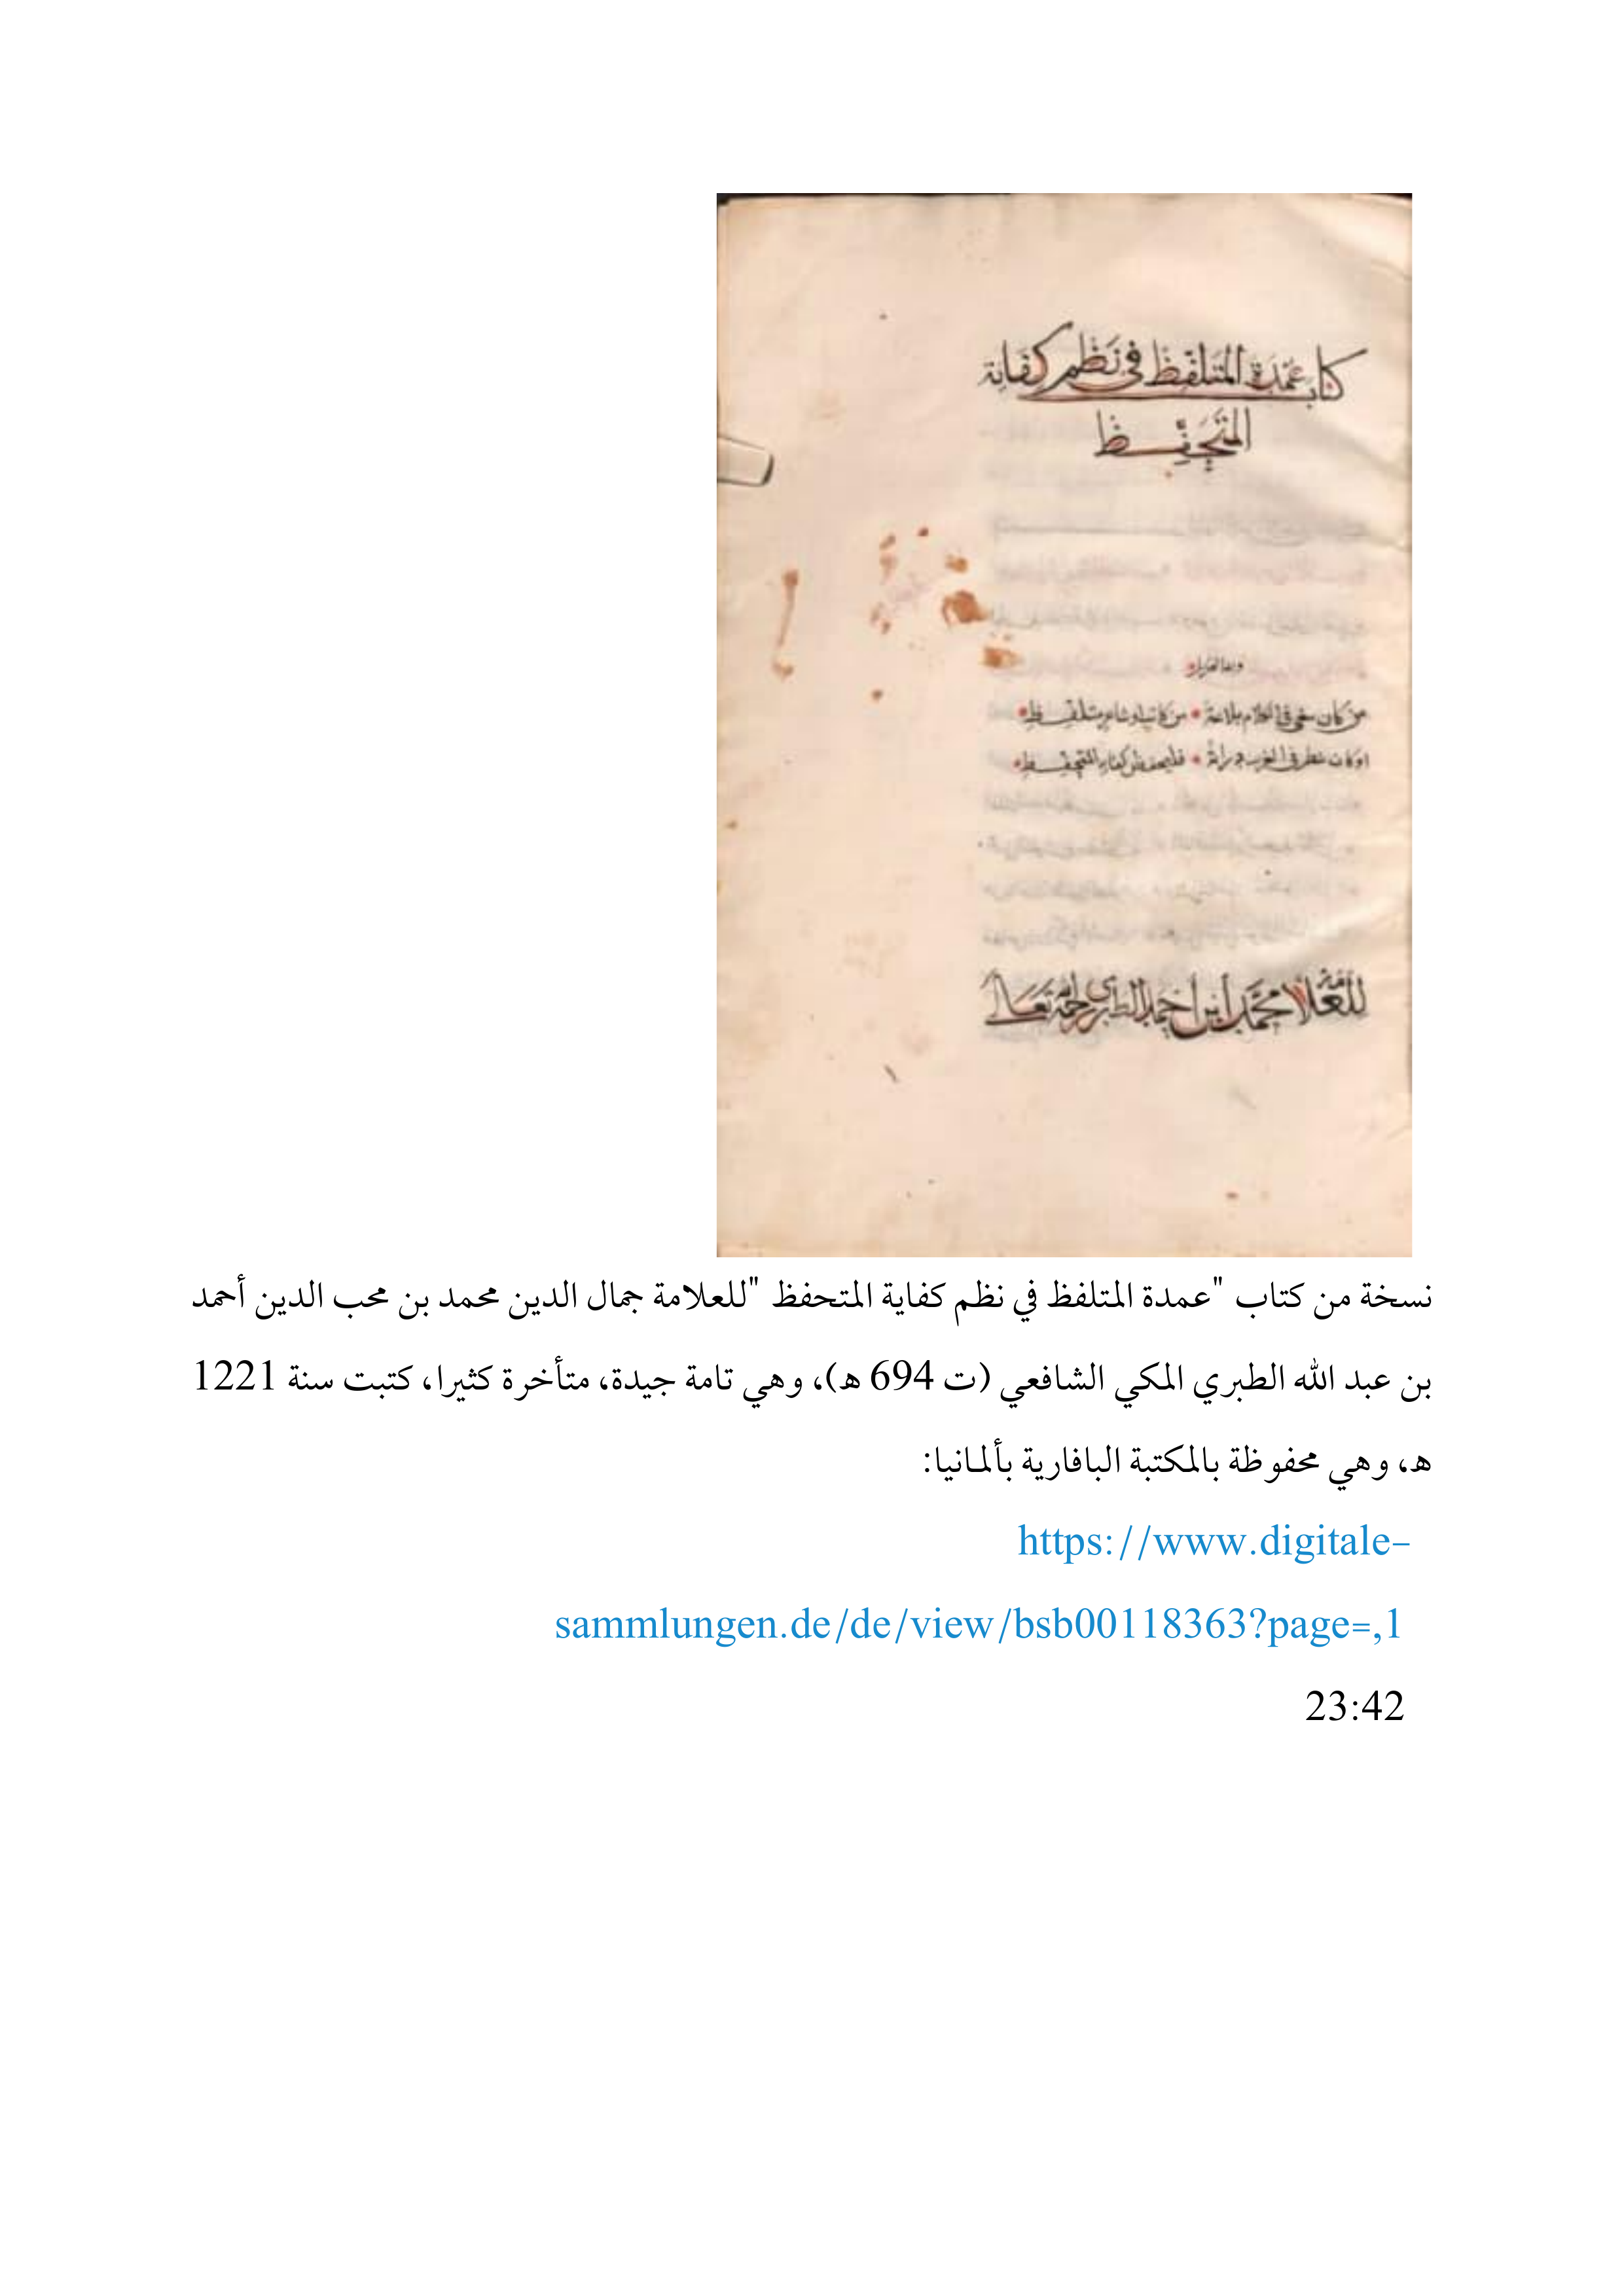 كتاب عمدة المتلفظ في نظم كفاية
المتحفظ
من كان ينبغي في الكلام بلاغة • من كاتب او شاعر متلفظ •
فليحفظن كفاية المتحفظ •
للعلامة محمد ابن احمد الطبري رحمه الله تعالى
نسخة من كتاب "عمدة المتلفظ في نظم كفاية المتحفظ "للعلامة جمال الدين محمد بن محب الدين أحمد
بن عبد الله الطبري المكي الشافعي (ت 694 ه)، وهي تامة جيدة، متأخرة كثيرا، كتبت سنة 1221
ه، وهي محفوظة بالمكتبة البافارية بألمانيا:
https://www.digitale-
sammlungen.de/de/view/bsb00118363?page=,1
23:42